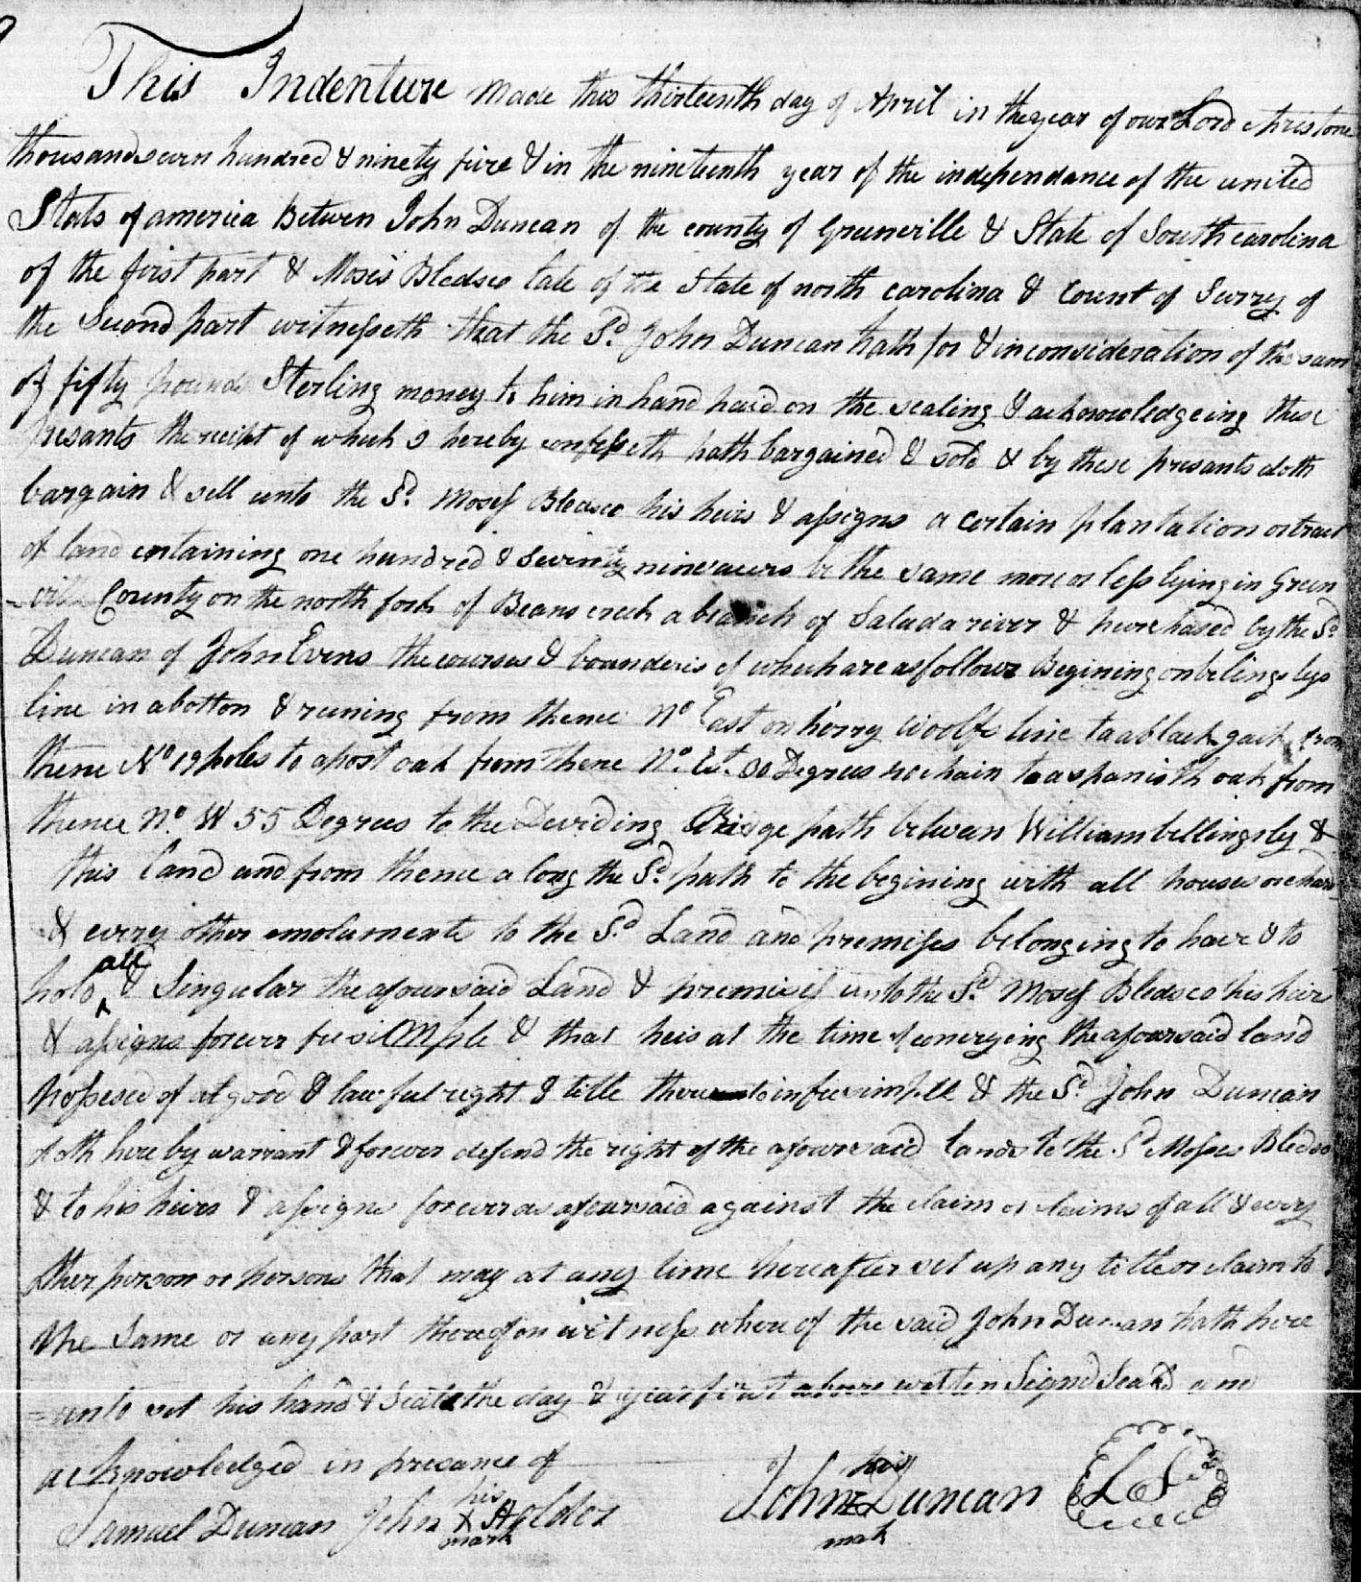 This Indenture Made this thirteenth day of April in the year of our Lord christ one
thousand seven hundred & ninety five & in the nineteenth year of the independance of the united
Stats of america Betwen John Duncan of the county of Grunville & State of South carolina
of the first part & Moses Bledsoe late of the State of north carolina & Count of Surry of
the Second part witnesseth that the Sd John Duncan hath for & in consideration of the sum
of fifty pounds Sterling money to him in hand paid on the sealing & acknowledgeing these
presants the recipt of which I hereby confesseth hath bargained & sold & by these presants doth
bargain & sell unto the Sd. Moses Bledsoe his heirs & assigns a certain plantation or tract
of land containing one hundred & seventy nine acers be the same more or less lying in Green
-ville County on the north fork of Beans creek a branch of Saluda river & purchased by the Sd
Duncan of John Evens the courses & bounderis of which are as follows Begining on belings lys
line in a botton & runing from thence No East on horry Woolfs line to a black from
thence No 19 poles to a post oak from thence No. Et. 30 Degrees chain to a spanish oak from
thence No. W 55 Degrees to the Deviding Ridge path betwean William billingsly &
this land and from thence along the Sd. path to the begining with all houses orchard
& every other emoluments to the Sd. Land and premises belonging to have & to
hold all & Singular the afoursaid Land & premises unto the Sd Moses Bledsoe his heirs
& assigns forever fee simple & that he is at the time of converging the afoursaid land
possesed of a good & lawful right & title thereunto in fee simple & the Sd John Duncan
doth hereby warrant & forever defend the right of the afoursaid lands to the Sd Mosses Bledso
& to his heirs & assigns forever as afoursaid against the claim or claims of all & every
other person or persons that may at any time hereafter set up any title or claim to
the Same or any part thereof on witness where of the said John Duncan hath here
=unto set his hand & Seal the day & year first above written Signd Seald and
acknowledged in presance of
his his
Samuel Duncan John X Holder John Duncan LS
mark mark